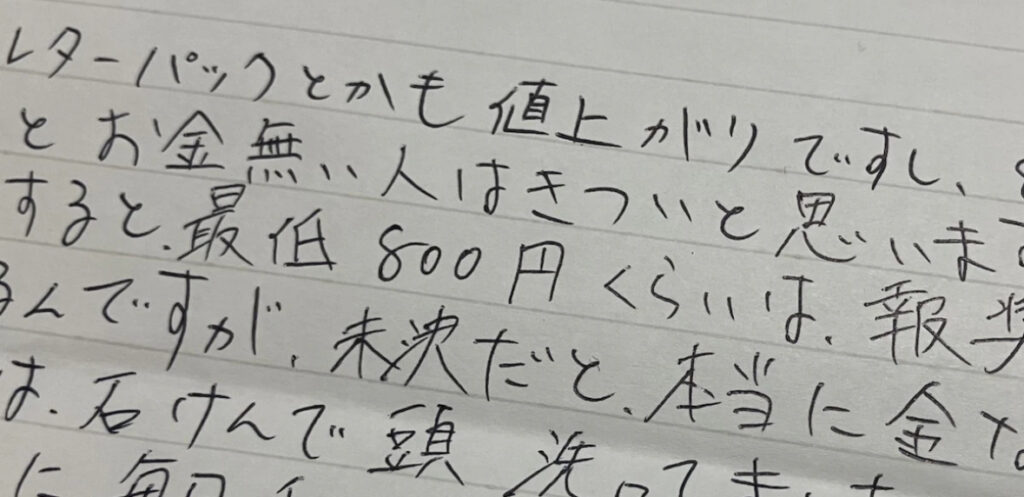 レターパックとかも値上がりですし、
とお金無い人はきついと思います
すると、最低800円くらいは、報奨
るんですが、未決だと、本当に金な
は、石けんで頭洗ってました
に毎日